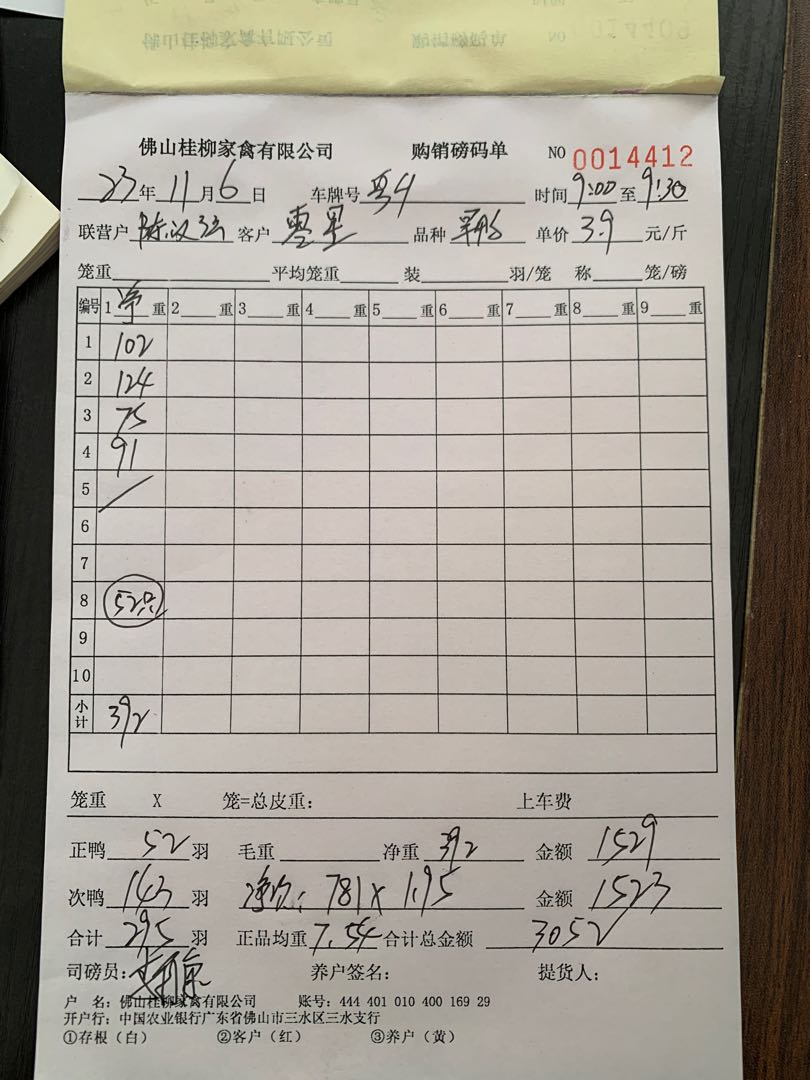 佛山桂柳家禽有限公司 购销磅码单 NO 0014412
23年11月6日 车牌号 时间9:00至9:30
联营户 客户 品种 单价3.9元/斤
笼重 平均笼重 装 羽/笼 称 笼/磅
编号 1净重 2 重 3 重 4 重 5 重 6 重 7 重 8 重 9 重
1 102
2 124
3 75
4 91
5 /
6
7
8 52只
9
10
小计 392
笼重 X 笼=总皮重: 上车费
正鸭52羽 毛重 净重392 金额1529
次鸭143羽 净次: 781X1.95 金额1523
合计295羽 正品均重7.54 合计总金额3052
司磅员: 养户签名: 提货人:
户 名: 佛山桂柳家禽有限公司 账号: 444 401 010 400 169 29
开户行: 中国农业银行广东省佛山市三水区三水支行
①存根(白) ②客户(红) ③养户(黄)